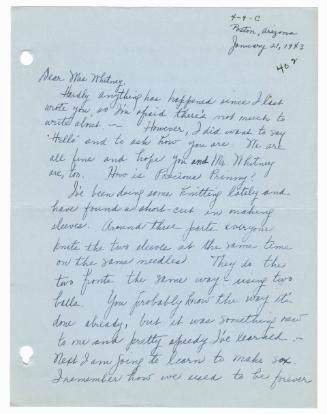 4-9-C
Poston, Arizona
January 21, 1943
Dear Mrs Whitney,
Hardly anything has happened since I last
wrote you, so I'm afraid there's not much to
write about — However, I did want to say
"Hello" and to ask how you are. We are
all fine and hope you and Mr Whitney
are, too. How is Precious Prenny?
I've been doing some knitting lately and
have found a short-cut in making
sleeves. Around these parts everyone
knits the two sleeves at the same time
on the same needles. They do the
two fronts the same way - using two
balls. You probably know the way it's
done already, but it was something new
to me and pretty speedy I've learned. —
Next I am going to learn to make sox.
I remember how we used to be forever